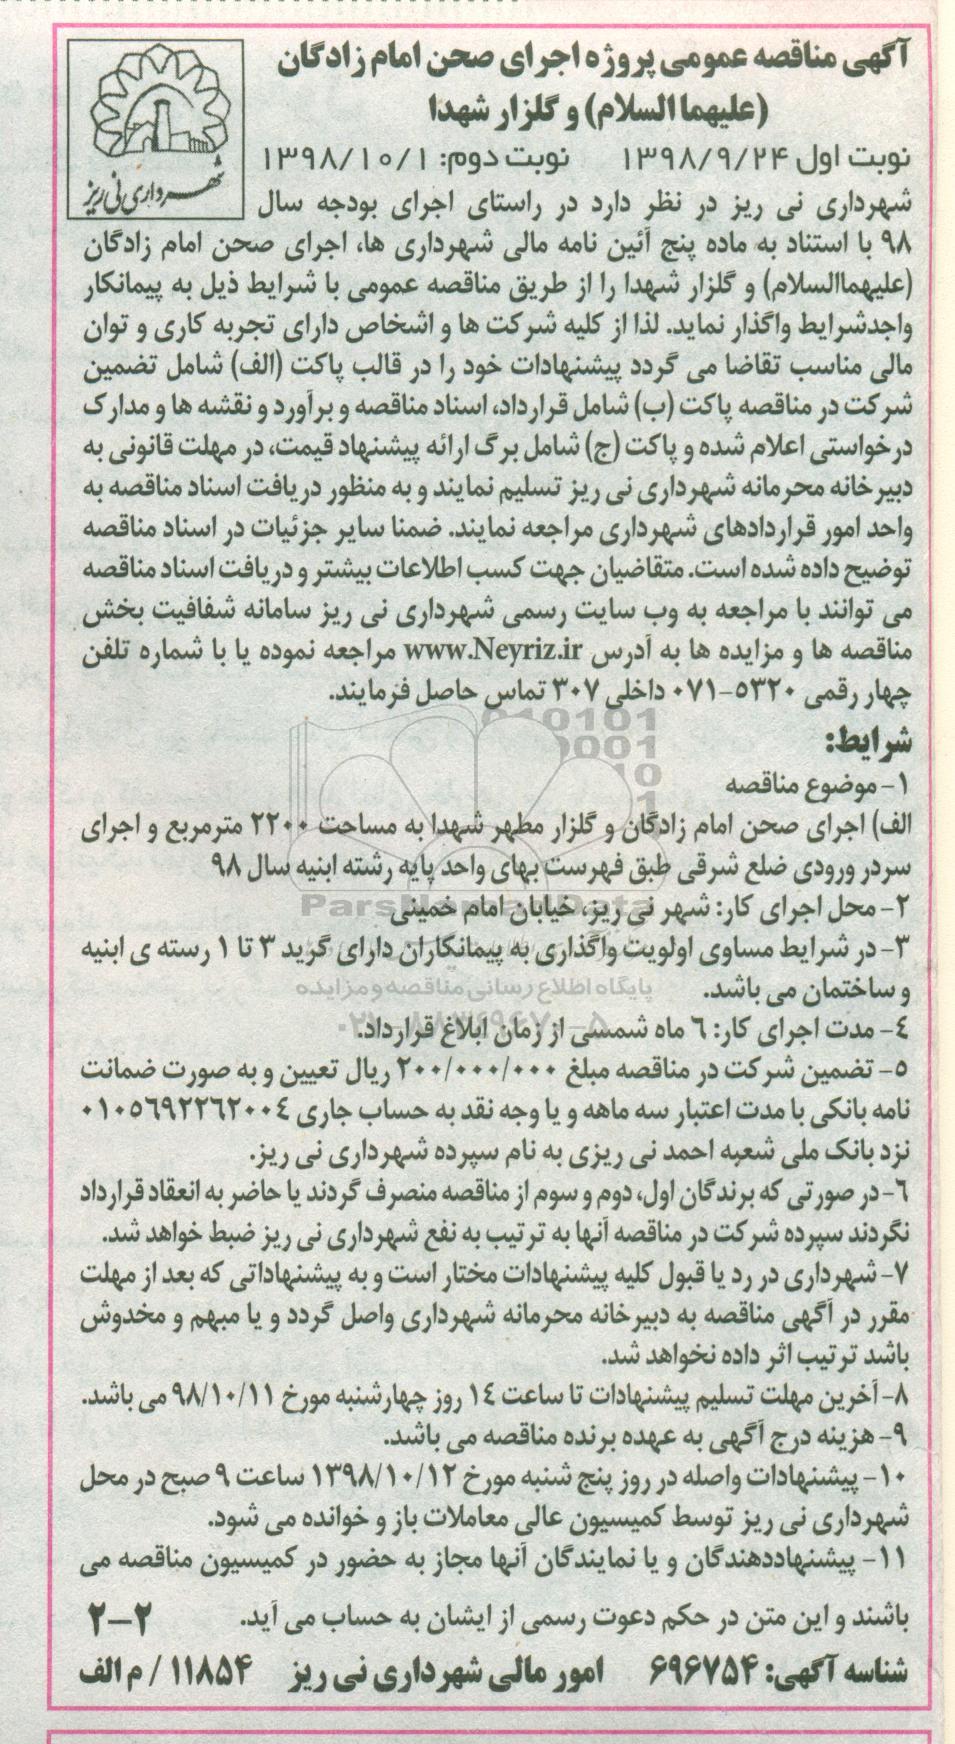 آگهی مناقصه عمومی پروژه اجرای صحن امام زادگان
(علیهما السلام) و گلزار شهدا
شهرداری نی ریز
نوبت اول ۱۳۹۸/۹/۲۴ نوبت دوم: ۱۳۹۸/۱۰/۱
شهرداری نی ریز در نظر دارد در راستای اجرای بودجه سال
۹۸ با استناد به ماده پنج آئین نامه مالی شهرداری ها، اجرای صحن امام زادگان
(علیهماالسلام) و گلزار شهدا را از طریق مناقصه عمومی با شرایط ذیل به پیمانکار
واجدشرایط واگذار نماید. لذا از کلیه شرکت ها و اشخاص دارای تجربه کاری و توان
مالی مناسب تقاضا می گردد پیشنهادات خود را در قالب پاکت (الف) شامل تضمین
شرکت در مناقصه پاکت (ب) شامل قرارداد، اسناد مناقصه و برآورد و نقشه ها و مدارک
درخواستی اعلام شده و پاکت (ج) شامل برگ ارائه پیشنهاد قیمت، در مهلت قانونی به
دبیرخانه محرمانه شهرداری نی ریز تسلیم نمایند و به منظور دریافت اسناد مناقصه به
واحد امور قراردادهای شهرداری مراجعه نمایند. ضمنا سایر جزئیات در اسناد مناقصه
توضیح داده شده است. متقاضیان جهت کسب اطلاعات بیشتر و دریافت اسناد مناقصه
می توانند با مراجعه به وب سایت رسمی شهرداری نی ریز سامانه شفافیت بخش
مناقصه ها و مزایده ها به آدرس www.Neyriz.ir مراجعه نموده یا با شماره تلفن
چهار رقمی ۵۳۲۰-۰۷۱ داخلی ۳۰۷ تماس حاصل فرمایند.
شرایط:
۱- موضوع مناقصه
الف) اجرای صحن امام زادگان و گلزار مطهر شهدا به مساحت ۲۲۰۰ مترمربع و اجرای
سردر ورودی ضلع شرقی طبق فهرست بهای واحد پایه رشته ابنیه سال ۹۸
۲- محل اجرای کار: شهر نی ریز، خیابان امام خمینی
ParsNamadData
۳- در شرایط مساوی اولویت واگذاری به پیمانکاران دارای گرید ۳ تا ۱ رسته ی ابنیه
و ساختمان می باشد.
پایگاه اطلاع رسانی مناقصه و مزایده
۴- مدت اجرای کار: ۶ ماه شمسی از زمان ابلاغ قرارداد.
۵- تضمین شرکت در مناقصه مبلغ ۲۰۰/۰۰۰/۰۰۰ ریال تعیین و به صورت ضمانت
نامه بانکی با مدت اعتبار سه ماهه و یا وجه نقد به حساب جاری ۰۱۰۵۶۹۲۲۶۲۰۰۴
نزد بانک ملی شعبه احمد نی ریزی به نام سپرده شهرداری نی ریز.
۶- در صورتی که برندگان اول، دوم و سوم از مناقصه منصرف گردند یا حاضر به انعقاد قرارداد
نگردند سپرده شرکت در مناقصه آنها به ترتیب به نفع شهرداری نی ریز ضبط خواهد شد.
۷- شهرداری در رد یا قبول کلیه پیشنهادات مختار است و به پیشنهاداتی که بعد از مهلت
مقرر در آگهی مناقصه به دبیرخانه محرمانه شهرداری واصل گردد و یا مبهم و مخدوش
باشد ترتیب اثر داده نخواهد شد.
۸- آخرین مهلت تسلیم پیشنهادات تا ساعت ۱۴ روز چهارشنبه مورخ ۹۸/۱۰/۱۱ می باشد.
۹- هزینه درج آگهی به عهده برنده مناقصه می باشد.
۱۰- پیشنهادات واصله در روز پنج شنبه مورخ ۱۳۹۸/۱۰/۱۲ ساعت ۹ صبح در محل
شهرداری نی ریز توسط کمیسیون عالی معاملات باز و خوانده می شود.
۱۱- پیشنهاددهندگان و یا نمایندگان آنها مجاز به حضور در کمیسیون مناقصه می
باشند و این متن در حکم دعوت رسمی از ایشان به حساب می آید. ۲-۲
شناسه آگهی: ۶۹۶۷۵۴ امور مالی شهرداری نی ریز ۱۱۸۵۴ / م الف